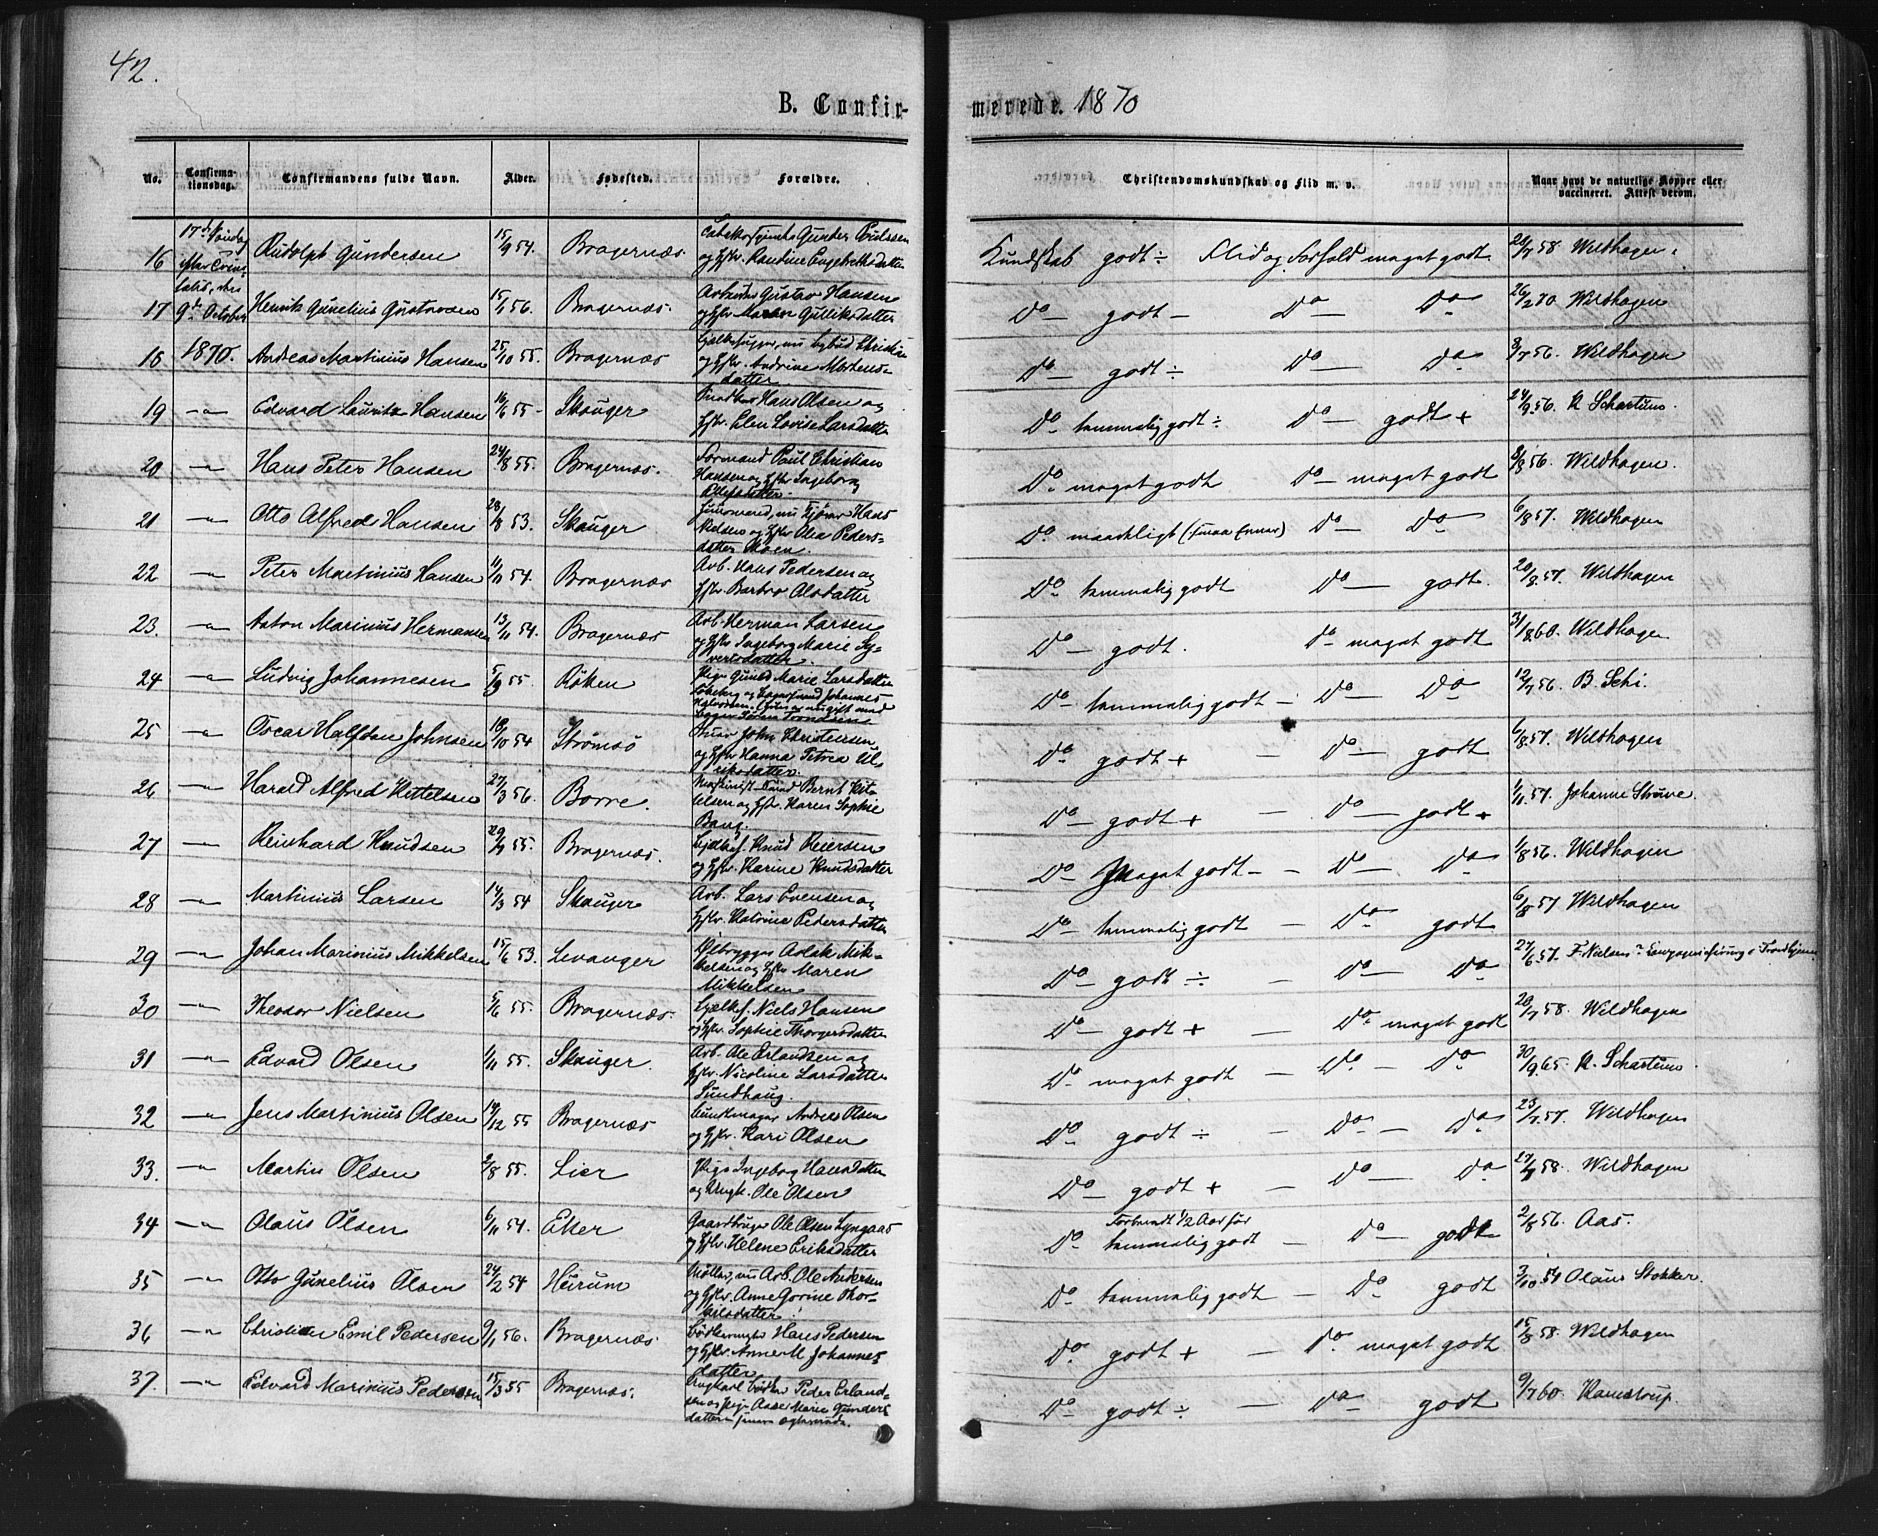 42.
B. Confir- merede. 1870
No. Confirma-tionsdag. Confirmandens fulde Navn. Alder. Fødested. Forældre. Christendomskundskab og Flid m. v. Naar havt de naturlige Kopper eller vaccineret. Attest derom.
16 17de Søndag efter Trinitatis, den Rudolph Gundersen 15/9 54. Bragernæs. Gunder Poulsen og Hstr. Randine Engebretsdatter Kundskab godt ÷ Flid og Forhold meget godt. 58 Wildhagen.
17 9de October Henrik Gunelius Gustavsen 15/1 56. Bragernæs. Arbeider Gustav Hansen og Hstr Maren Gulliksdatter Do — godt — Do — Do 26/2 70 Wildhagen
18 1870. Andreas Martinius Hansen 25/10 55. Bragernæs Christian og Hstr. Andrine Mortensdatter Do — godt ÷ Do — Do 3/7 56. Wildhagen
19 — " Edvard Lauritz Hansen 16/6 55 - Skouger Hans Olsen og Hstr. Elen Lovise Larsdatter Do temmelig godt ÷ Do — godt + 24/9 56. K Schartum.
20 — " Hans Peter Hansen 24/8 55. Bragernæs. Formand Paul Christian Hansen og Hstr Ingeborg Do meget godt Do — meget godt 2/8 56. Wildhagen.
21 — " Otto Alfred Hansen 28/8 53. Skouger nu Hans Nielsen og Hstr Olea Pedersdatter Moen. Do maadeligt (smaa Evner) Do — Do 6/8 57. Wildhagen
22 — " Peter Martinius Hansen 11/11 54. Bragernæs Arb. Hans Pedersen og Hstr. Barbro Olsdatter Do temmelig godt Do — godt. 20/8 57. Wildhagen
23. — " Anton Marinius Hermansen 13/11 54. Bragernæs Arb. Herman Larsen og Hstr Ingeborg Marie Syvertsdatter. Do — godt. Do meget godt 31/8 60. Wildhagen
24 — " Ludvig Johannesen 5/9 55. Røken Pige Gunild Marie Larsdatter Johannes Halvorsen. (hun er nu gift med Søren Trondsen Do — temmelig godt — Do — Do 12/7 56. B. Schi.
25 — " Oscar Halfdan Johnsen 18/10 54 Strømsø John Christensen og Hstr Hanna Petrea Ulriksdatter. Do — godt + — Do — godt 6/8 57. Wildhagen
26 — " Harald Alfred Kittelsen 27/3 56. Borre. Maskinist Bernt Kittelsen og Hstr. Karen Sophie Bang. Do — godt + — Do — godt + 1/11 57. Johanne Struve.
27 — " Reinhard Knudsen 29/9 55. Bragernæs. Knud Reiersen og Hstr. Karine Knudsdatter Do meget godt — — Do — Do 1/8 56. Wildhagen
28 — " Martinius Larsen 14/3 54 Skouger Arb. Lars Evensen og Hstr. Katrine Pedersdatter Do — temmelig godt — Do — godt 6/8 57 Wildhagen
29 — " Johan Marinius Mikkelsen 15/6 53. Levanger Aslak Mikkelsen og Hstr Maren Mikkelsen Do — godt ÷ — Do — Do 27/6 57. F. Nielsen Trondhjem
30 — " Theodor Nielsen 5/6 55. Bragernæs. Niels Hansen og Hstr. Sophie Thorgersdatter Do — godt + — Do meget godt 20/7 58. Wildhagen
31 — " Edvard Olsen 1/11 55. Skouger. Arb. Ole Erlandsen og Hstr. Nicoline Larsdatter Sundhaug. Do meget godt — Do — Do 30/9 65. K. Schartum
32 — " Jens Martinius Olsen 14/12 55 Bragernæs Buntmager Andreas Olsen og Hstr. Kari Olsen Do godt ÷ — Do — Do 23/7 57. Wildhagen
33. — " Martin Olsen 2/8 55. Lier Pige Ingeborg Hansdatter og Ungk. Ole Olsen Do — godt + — Do — Do 27/8 58. Wildhagen
34 — " Olaus Olsen 6/11 54. Eker Gaardbruger Ole Olsen Lyngaas og Hstr. Helene Eriksdatter Do Forberedt 1/2 Aar før temmelig godt — Do — godt 2/8 56. Aas.
35 — " Otto Gunelius Olsen 24/2 54 Hurum Møller, nu Arb. Ole Andersen og Hstr. Anne Gorine Thorkilsdatter Do temmelig godt — Do godt 3/10 54 Olaus Stokker.
36 — " Christian Emil Pedersen 9/1 56. Bragernæs. Hans Pedersen og Hstr. Anne M Johannesdatter Do godt + — Do meget godt 15/8 58. Wildhagen
37 — " Edvard Marinius Pedersen 15/3 55 Bragernæs. Ungkarl Bødker Peder Erlandsen og Pige Aase Marie Gundersdatter Do godt ÷ — Do godt 9/7 60. Kamstrup.